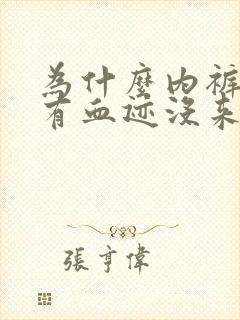 為什麼內裤
有血迹没来
張亨偉